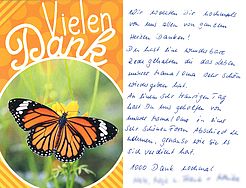 Vielen
Dank
Wir wollten dir nochmals
von uns allen von ganzem
Herzen Danken!
Du hast eine wunderbare
Rede gehalten die das Leben
unserer Mama/Oma sehr schön
wiedergegeben hat.
An einem sehr traurigen Tag
hast Du uns geholfen von
unserer Mama/Oma in einer
sehr schönen Form Abschied zu
nehmen, genauso wie sie es
sich verdient hat.
1000 Dank nochmal